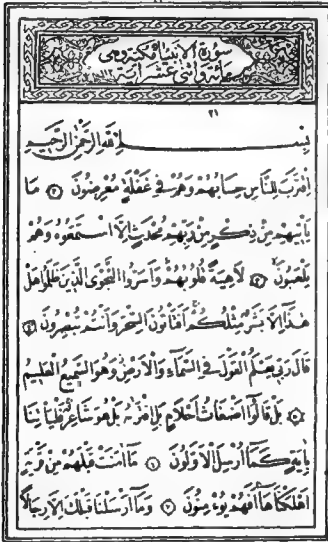 سورة الأنبياء مكية وهي
مائة واثنتي عشر آية
٢١
بِسْمِ اللهِ الرَّحْمٰنِ الرَّحِيمِ
اِقْتَرَبَ لِلنَّاسِ حِسَابُهُمْ وَهُمْ فِي غَفْلَةٍ مُعْرِضُونَ ۝ مَا
يَأْتِيهِمْ مِنْ ذِكْرٍ مِنْ رَبِّهِمْ مُحْدَثٍ اِلَّا اسْتَمَعُوهُ وَهُمْ
يَلْعَبُونَ ۝ لَاهِيَةً قُلُوبُهُمْ وَاَسَرُّوا النَّجْوَى الَّذِينَ ظَلَمُوا هَلْ
هٰذَا اِلَّا بَشَرٌ مِثْلُكُمْ اَفَتَأْتُونَ السِّحْرَ وَاَنْتُمْ تُبْصِرُونَ ۝
قَالَ رَبِّي يَعْلَمُ الْقَوْلَ فِي السَّمَاءِ وَالْاَرْضِ وَهُوَ السَّمِيعُ الْعَلِيمُ
۝ بَلْ قَالُوا اَضْغَاثُ اَحْلَامٍ بَلِ افْتَرٰيهُ بَلْ هُوَ شَاعِرٌ فَلْيَأْتِنَا
بِاٰيَةٍ كَمَا اُرْسِلَ الْاَوَّلُونَ ۝ مَا اٰمَنَتْ قَبْلَهُمْ مِنْ قَرْيَةٍ
اَهْلَكْنَاهَا اَفَهُمْ يُؤْمِنُونَ ۝ وَمَا اَرْسَلْنَا قَبْلَكَ اِلَّا رِجَالًا